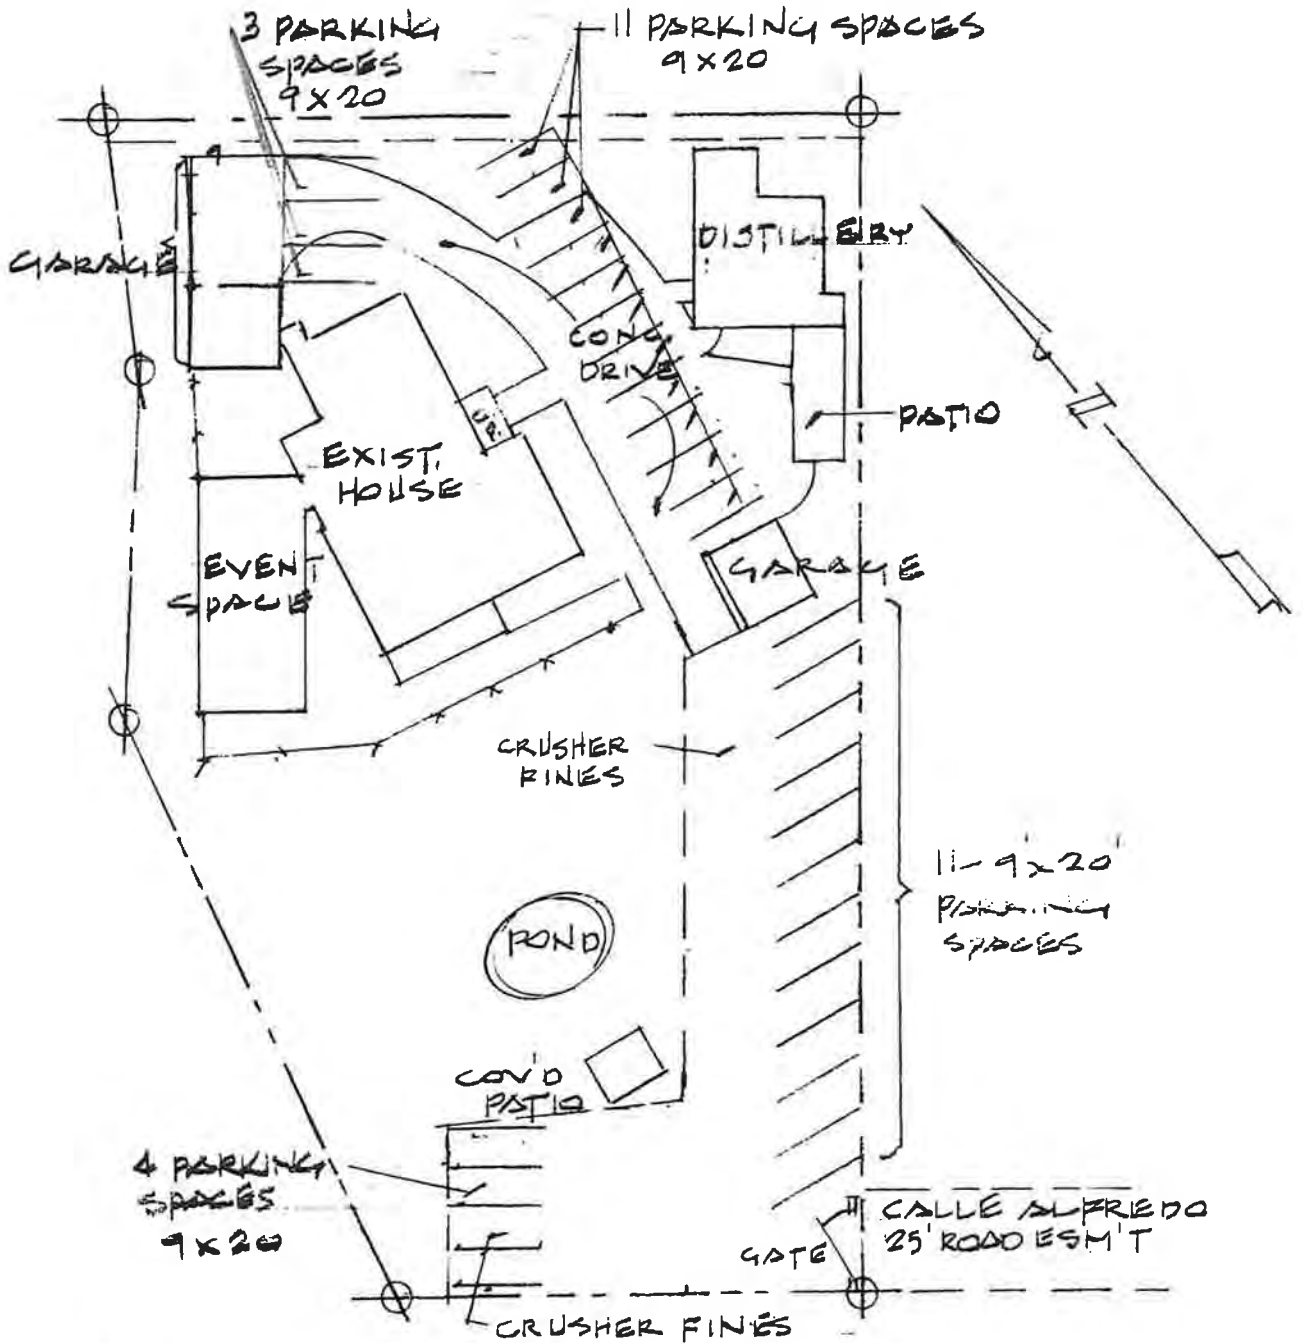 3 PARKING
SPACES
9 X 20
11 PARKING SPACES
9 X 20
GARAGE
DISTILLERY
CONC
DRIVE
PATIO
UP.
EXIST.
HOUSE
EVENT
SPACE
GARAGE
CRUSHER
FINES
11 - 9' x 20'
PARKING
SPACES
POND
COV'D
PATIO
4 PARKING
SPACES
9 X 20
CALLE ALFREDO
25' ROAD ESM'T
GATE
CRUSHER FINES